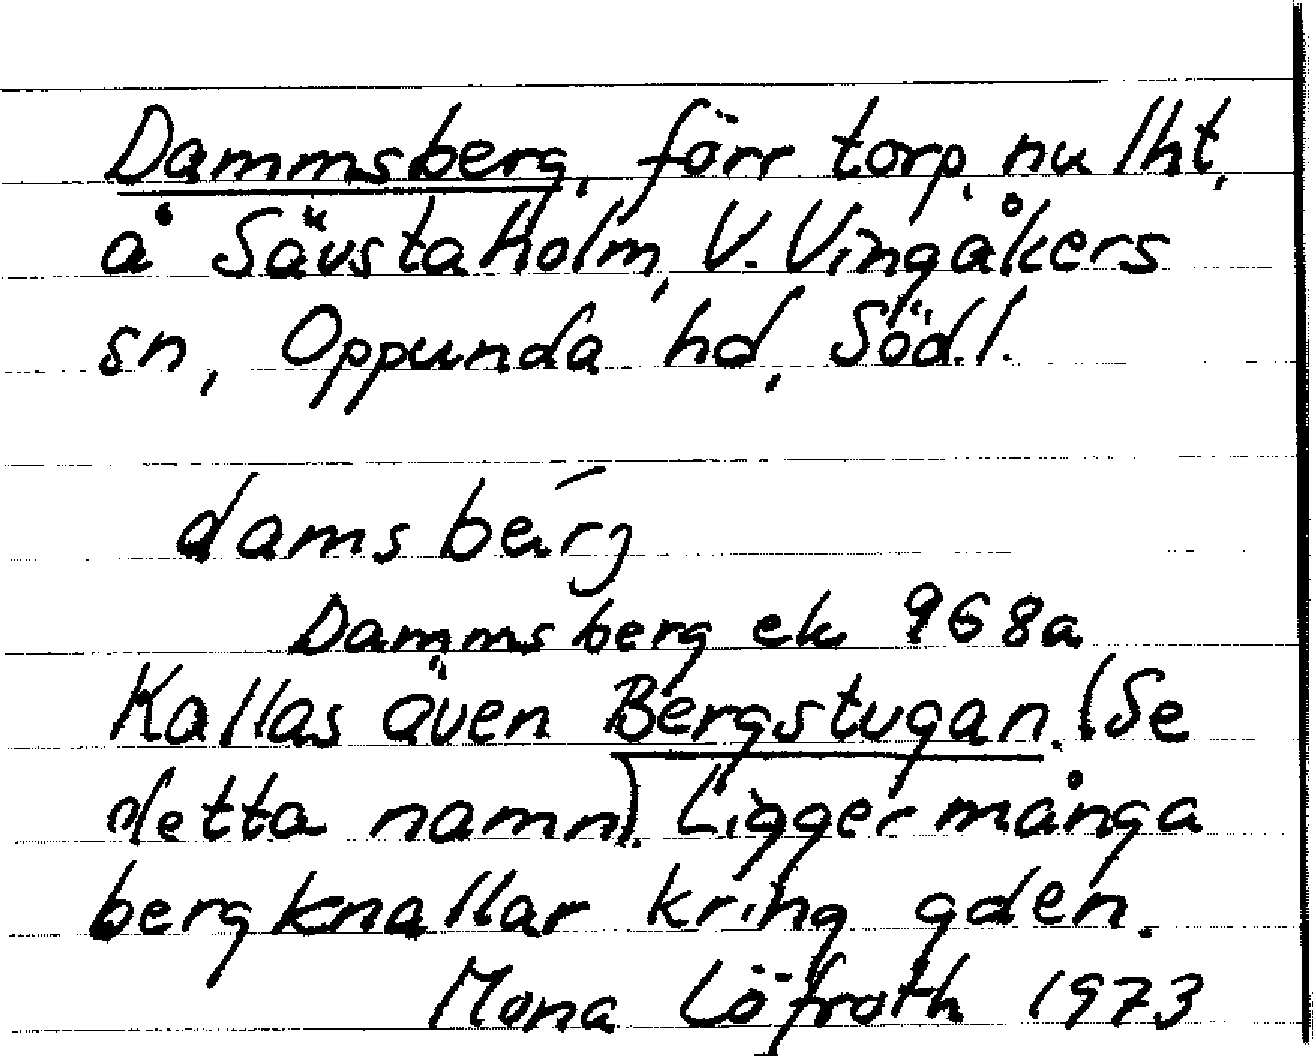 Dammsberg, förr torp, nu lht,
å Sävstaholm, V. Vingåkers
sn, Oppunda hd, Södl.
damsbärj
Dammsberg ek 968a
Kallas även Bergstugan. (Se
detta namn). Ligger många
bergknallar kring gden.
Mona Löfroth 1973